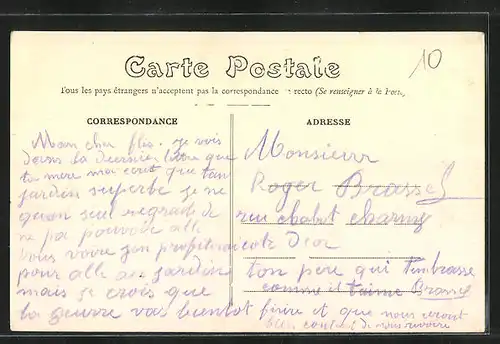 10
Carte Postale
Tous les pays étrangers n'acceptent pas la correspondance au recto (Se renseigner à la Poste)
CORRESPONDANCE
Mon cher fils. je vois
dans la dernière lettre que
ta mere ma ecrit que ton
jardin superbe je ne
quon seul regrait de
ne pa pouvoir alle
vous voire jen profiterai
pour alle au jardin
mais je crois que
la guerre vas bientot finire et que nous seront
bien content de nous revoire
ADRESSE
Monsieur
Roger Brassel
rue chabot charny
cote Dor
ton pere qui tembrasse
comme il taime Brassel